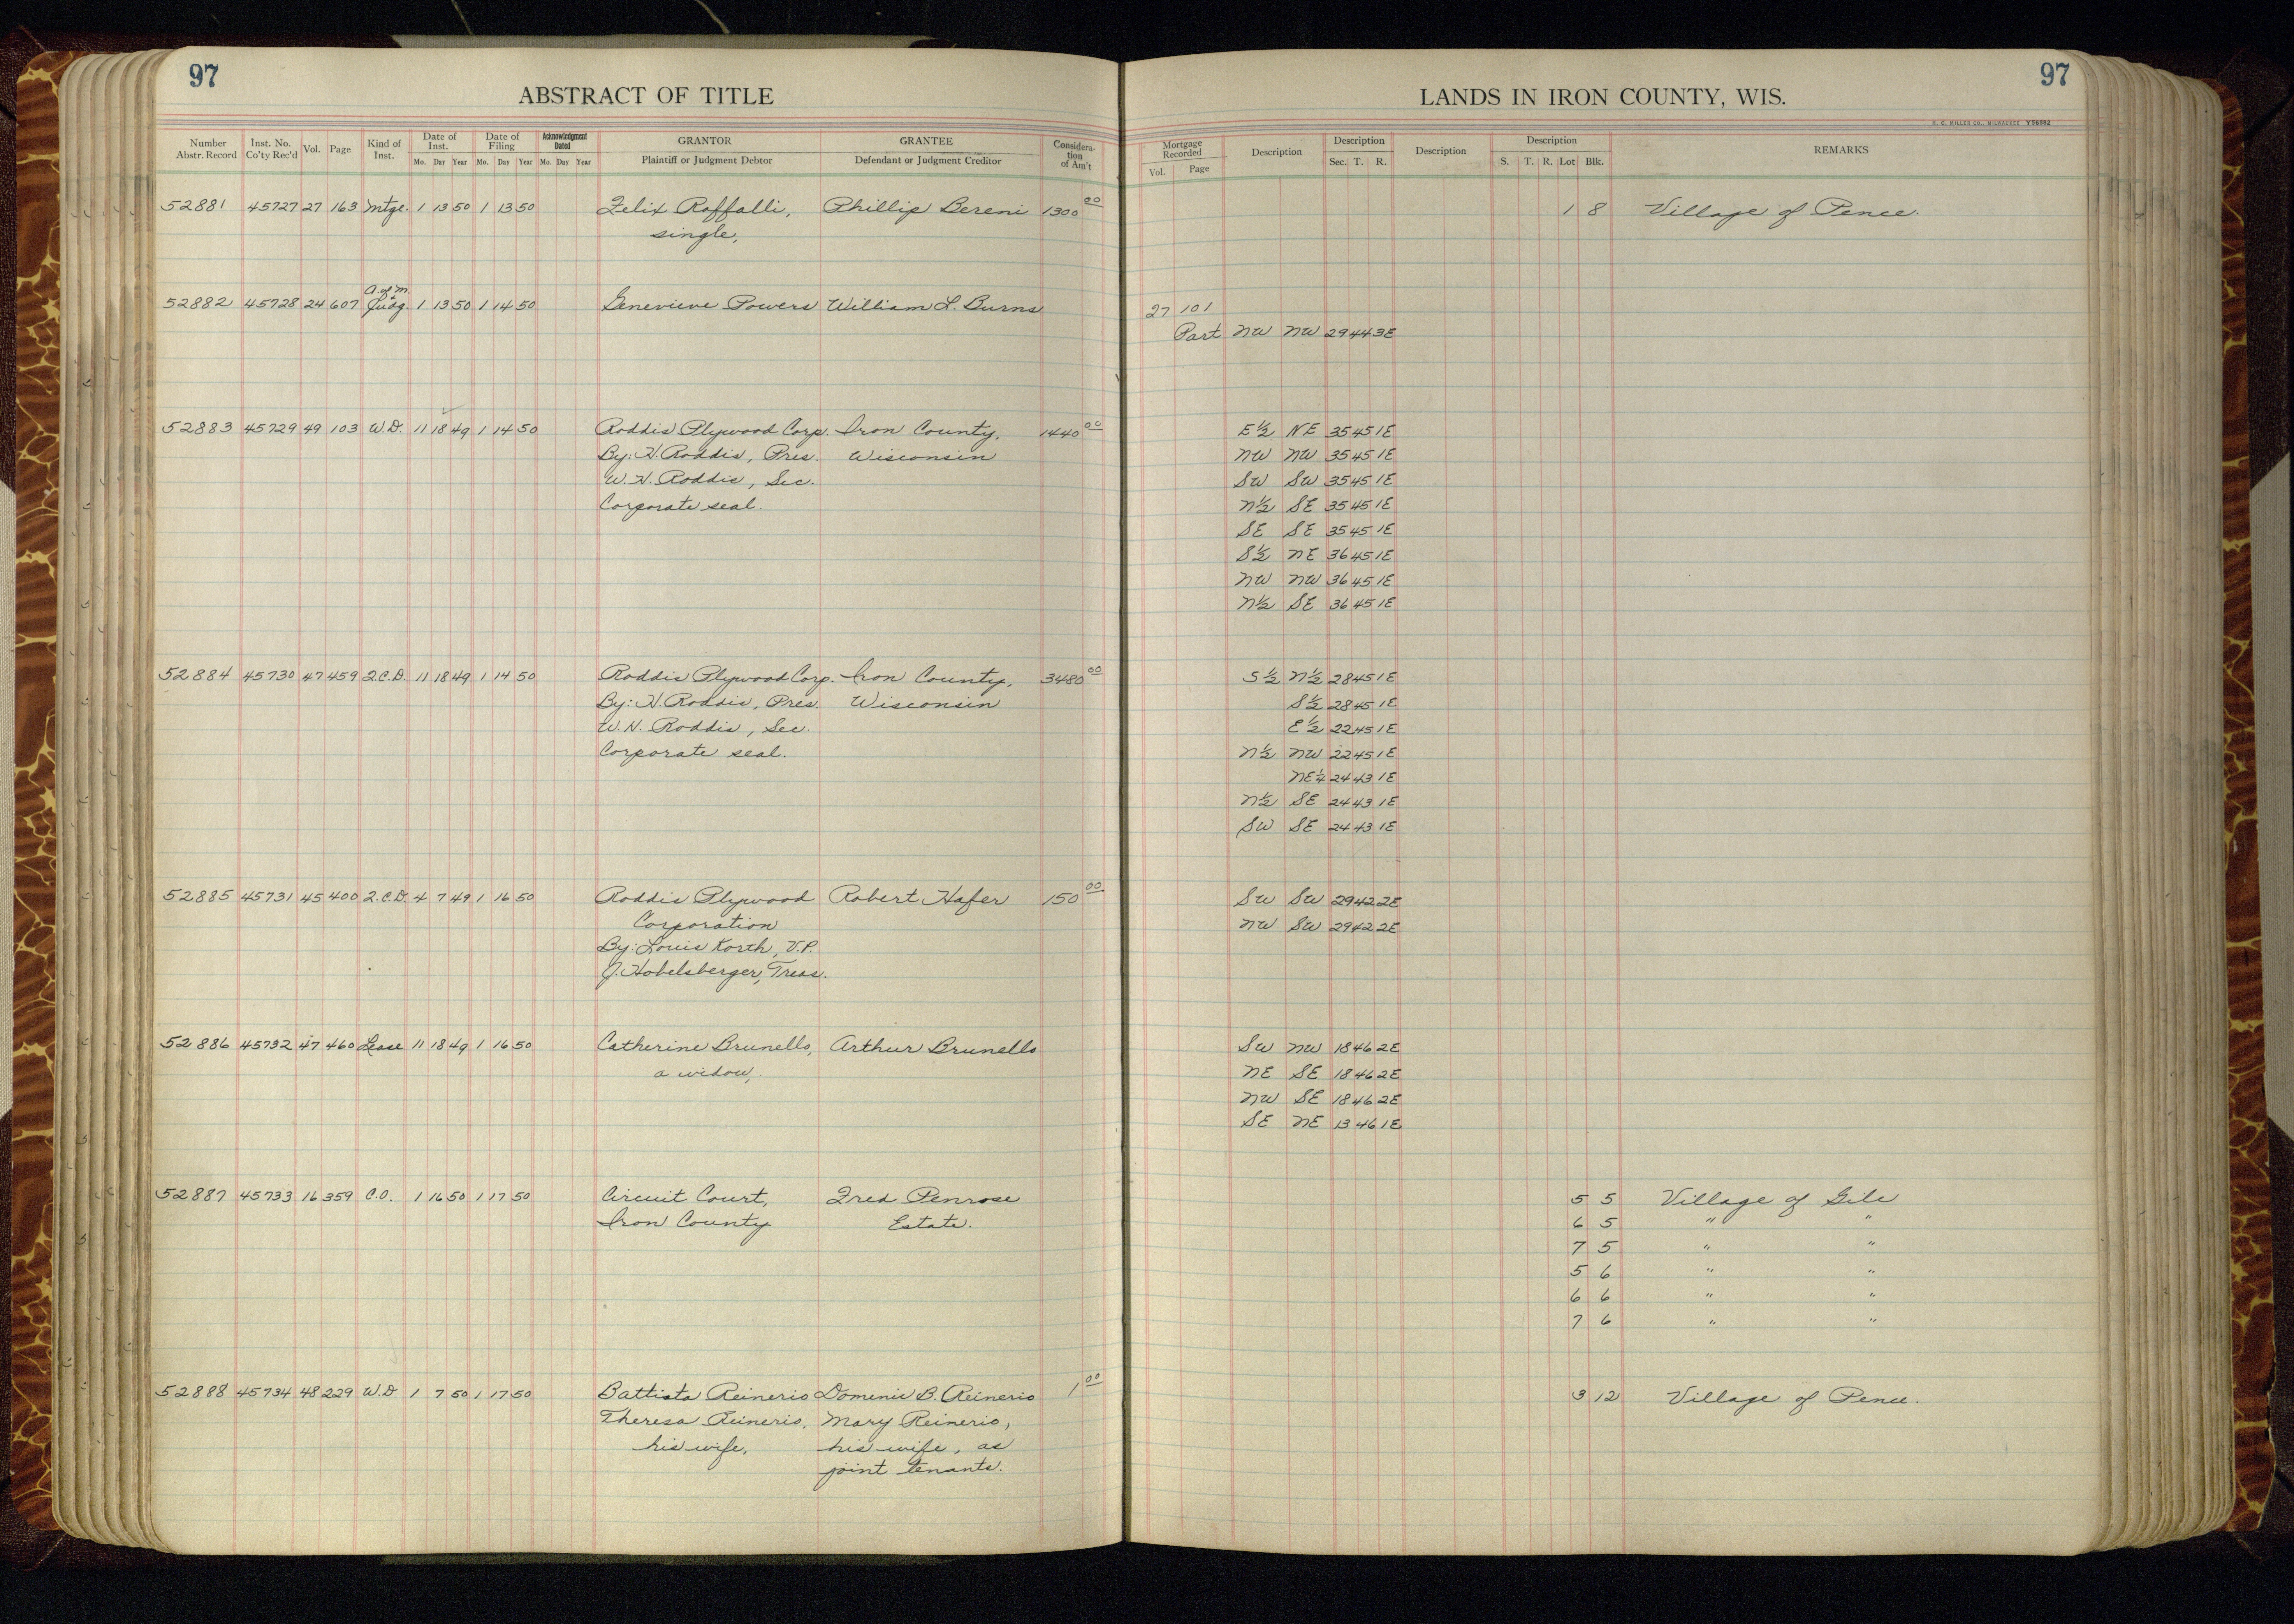 97
97
ABSTRACT OF TITLE
LANDS IN IRON COUNTY, WIS.
H. C. MILLER CO., MILWAUKEE Y56862
Number Abstr. Record Inst. No. Co'ty Rec'd Vol. Page Kind of Inst. Date of Inst. Mo. Day Year Date of Filing Mo. Day Year Acknowledgment Dated Mo. Day Year GRANTOR Plaintiff or Judgment Debtor GRANTEE Defendant or Judgment Creditor Considera-tion of Am't
Mortgage Recorded Vol. Page Description Description Sec. T. R. Description Description S. T. R. Lot Blk. REMARKS
52881 45727 27 163 Mtge. 1 13 50 1 13 50 Felix Raffalli, Phillip Bereni 1300 00 1 8 Village of Pence.
single,
A. of M.
52882 45728 24 607 Judg. 1 13 50 1 14 50 Genevieve Powers William L. Burns 27 101
Part NW NW 29 44 3E
52883 45729 49 103 W.D. 11 18 49 1 14 50 Roddis Plywood Corp. Iron County, 1440 00 E½ NE 35 45 1E
By: H. Roddis, Pres. Wisconsin NW NW 35 45 1E
W. H. Roddis, Sec. SW SW 35 45 1E
Corporate seal. N½ SE 35 45 1E
SE SE 35 45 1E
S½ NE 36 45 1E
NW NW 36 45 1E
N½ SE 36 45 1E
52884 45730 47 459 2.C.D. 11 18 49 1 14 50 Roddis Plywood Corp. Iron County, 3480 00 S½ N½ 28 45 1E
By: H. Roddis, Pres. Wisconsin S½ 28 45 1E
W. H. Roddis, Sec. E½ 22 45 1E
Corporate seal. N½ NW 22 45 1E
NE¼ 24 43 1E
N½ SE 24 43 1E
SW SE 24 43 1E
52885 45731 45 400 2.C.D. 4 7 49 1 16 50 Roddis Plywood Robert Hafer 150 00 SW SW 29 42 2E
Corporation NW SW 29 42 2E
By: Louis Korth, V.P.
J. Hobelsberger, Treas.
52886 45732 47 460 Lease 11 18 49 1 16 50 Catherine Brunello, Arthur Brunello SW NW 18 46 2E
a widow, NE SE 18 46 2E
NW SE 18 46 2E
SE NE 13 46 1E
52887 45733 16 359 C.O. 1 16 50 1 17 50 Circuit Court, Fred Penrose 5 5 Village of Gile
Iron County Estate. 6 5 " "
7 5 " "
5 6 " "
6 6 " "
7 6 " "
52888 45734 48 229 W.D 1 7 50 1 17 50 Battista Reinerio Domenic B. Reinerio 1 00 3 12 Village of Pence.
Theresa Reinerio, Mary Reinerio,
his wife, his wife, as
joint tenants.